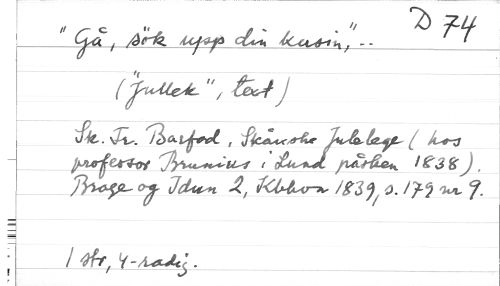 D 74
"Gå, sök upp din kusin," --
("Jullek", text)
Sk. Fr. Barfod, Skånske Julelege (hos
professor Brunius i Lund påsken 1838).
Brage og Idun 2, Kbhvn 1839, s. 179 nr 9.
1 str, 4-radig.